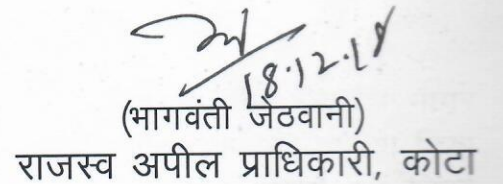 18.12.18
(भागवंती जेठवानी)
राजस्व अपील प्राधिकारी, कोटा